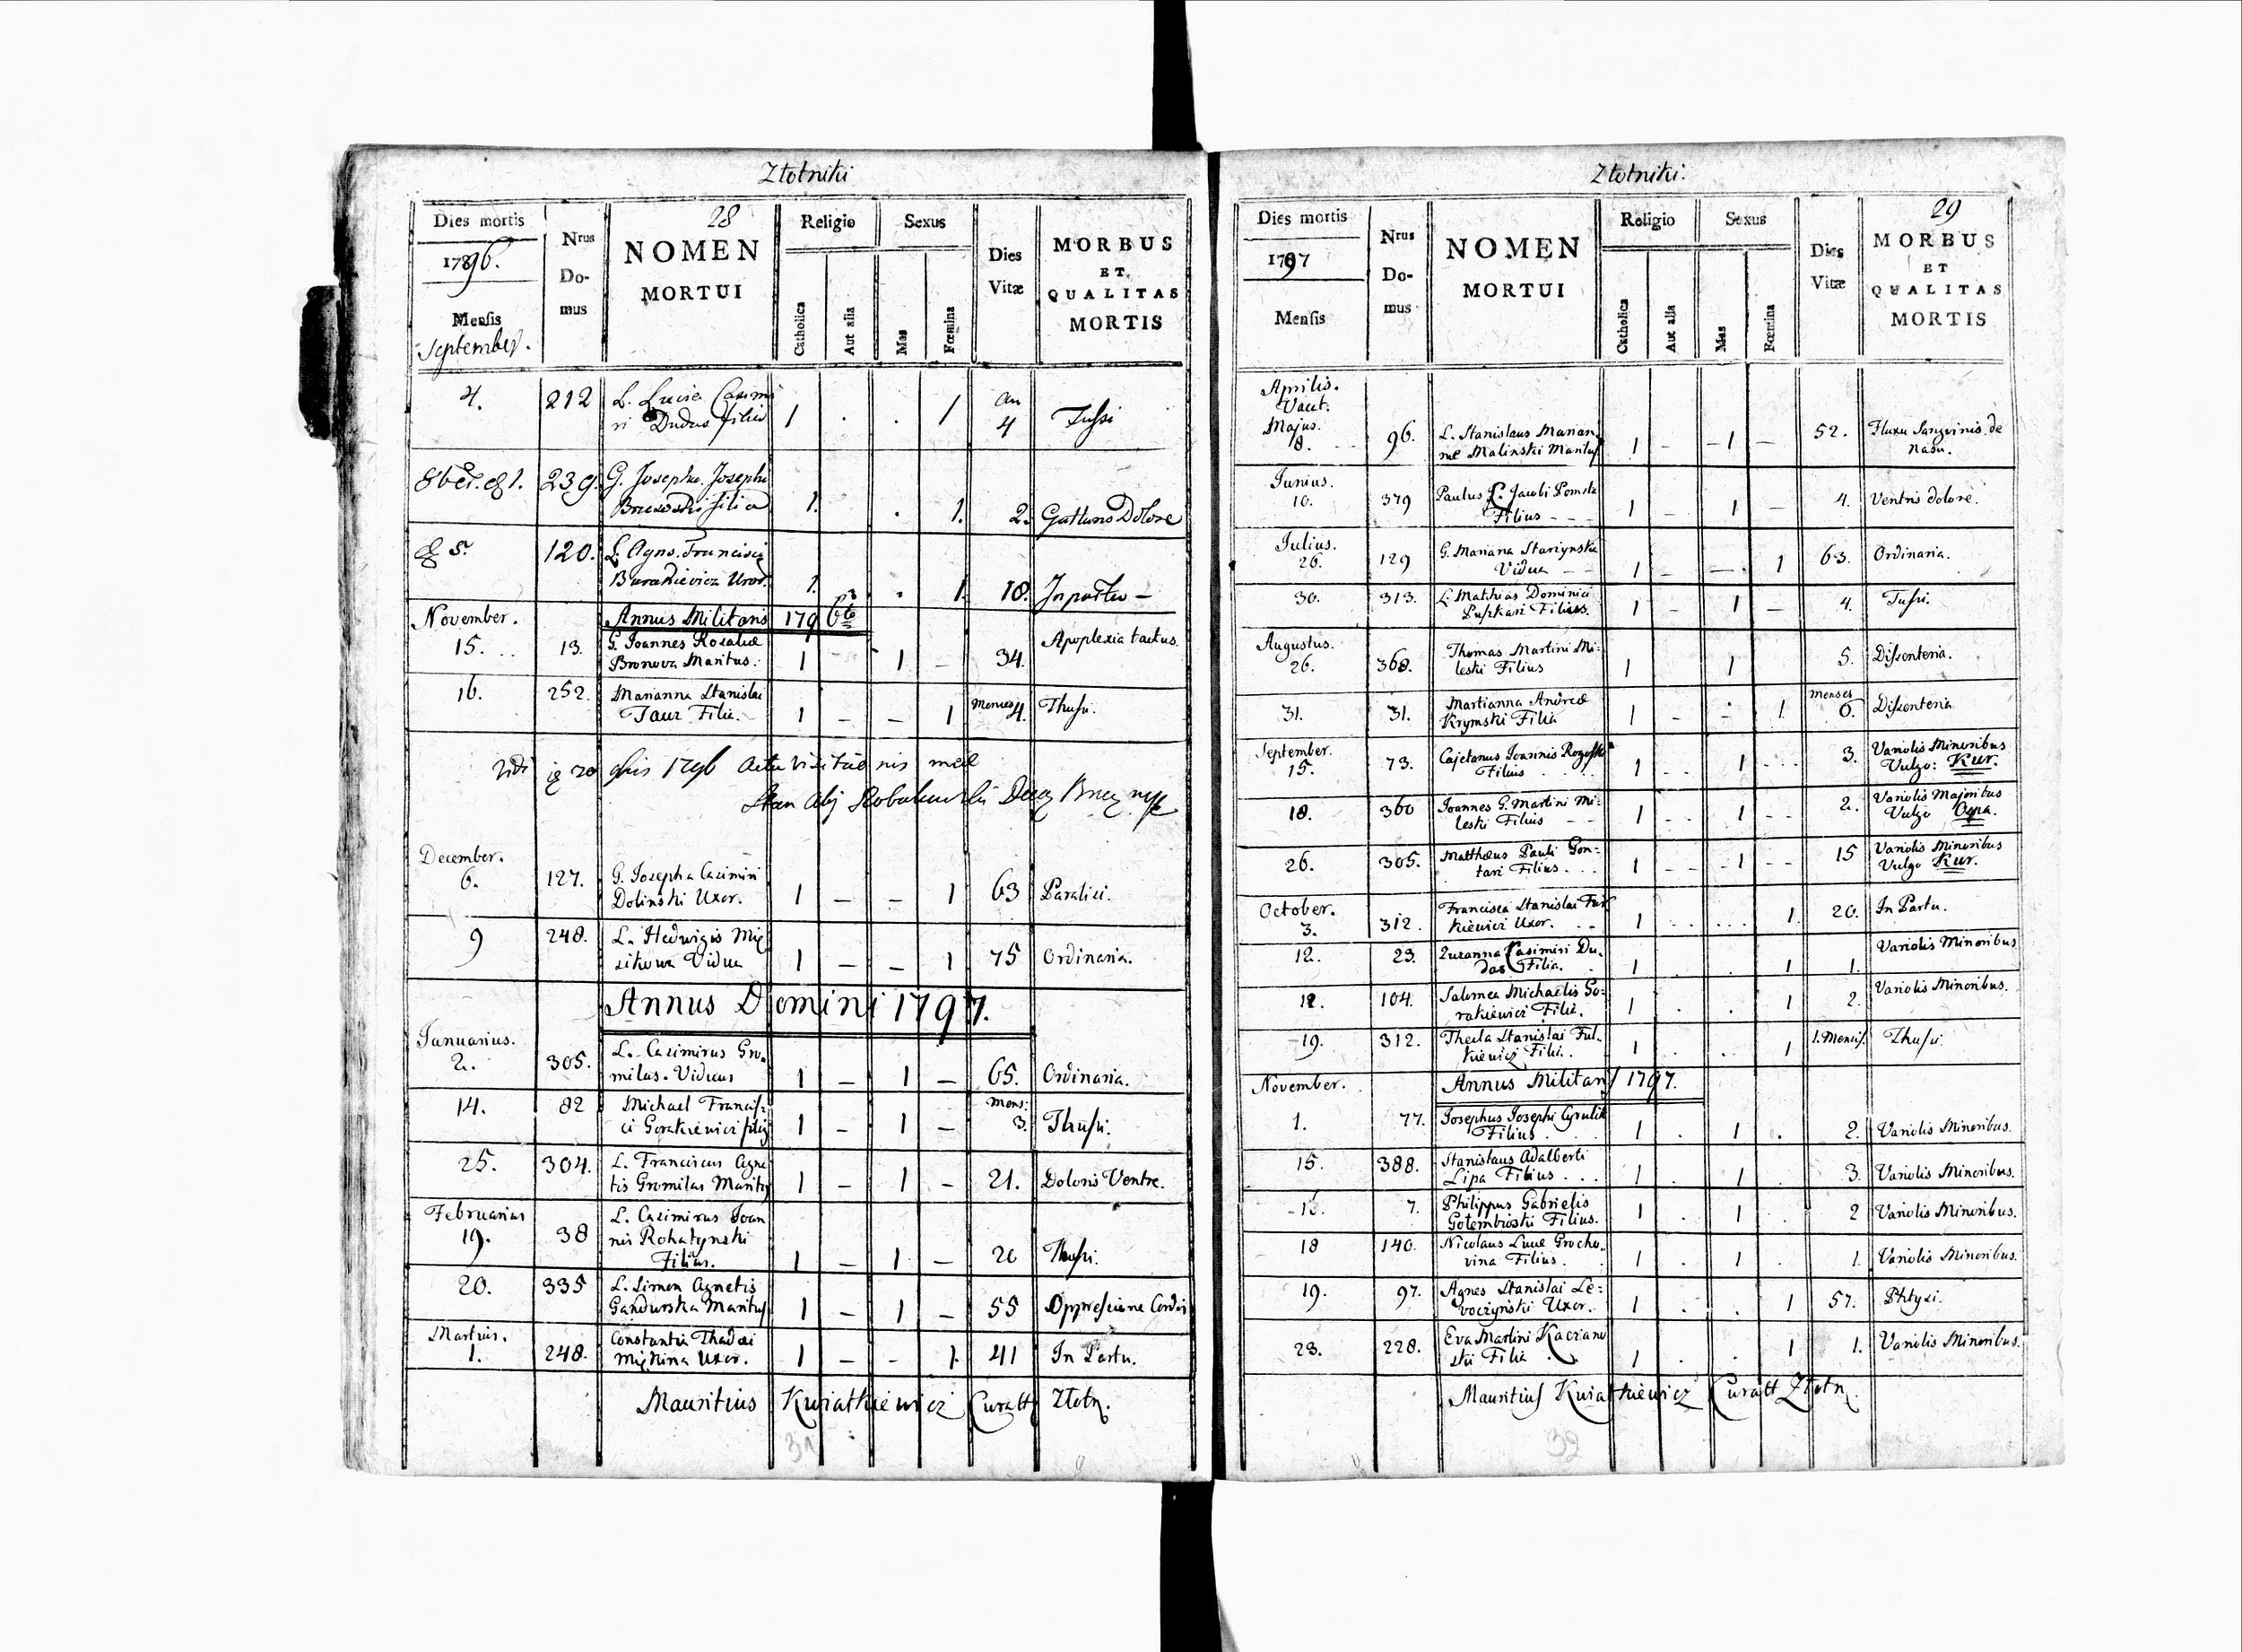 Złotniki
28
Dies mortis
Nrus Domus
NOMEN MORTUI
Religio
Sexus
Dies Vitæ
MORBUS ET QUALITAS MORTIS
1796.
Mensis
September.
Catholica
Aut alia
Mas
Fœmina
4. 212 L. Lucia Casimi 1 . . 1 an 4 Tussi
ri Dudas filia
8bris 239. G. Josepha Josephi
filia 1. . 1. 2. Gutturis Dolore
120. L. Agnes Francisci
Uxor. 1. . 1 18. In partu
November. Annus Militaris 1796to
15. 13. G. Joannes Rosaliæ Apoplexia tactus.
Bronova Maritus. 1 1 – 34.
16. 252. Marianna Stanislai Menses Thusi.
Jaur Filia. 1 – – 1 4.
1796
December.
6. 127. G. Josepha Casimiri
Dolinski Uxor. 1 – – 1 63 Paralisi.
9 248. L. Hedwigis Mię
sikowa Vidua 1 – – 1 75 Ordinaria.
Annus Domini 1797.
Januarius.
2. 305. L. Casimirus Gro-
milas. Viduus 1 – 1 – 65. Ordinaria.
14. 82 Michael Francis- Mens:
ci Gorakiewicz filius 1 – 1 – 3. Thusi.
25. 304. L. Franciscus Agne
tis Gromilas Maritus 1 – 1 – 21. Doloris Ventre.
Februarius
19. 38 L. Casimirus Joan
nis Rohatynski
Filius. 1 – 1 – 26 Thusi.
20. 335 L. Simon Agnetis
Gandurska Maritus 1 – 1 – 55 Oppressione Cordis
Martius. Constantia Thadæi
1. 248. Uxor. 1 – - 1. 41 In Partu.
Mauritius Kwiatkiewicz Curatt Złotn.
Złotniki.
29
Dies mortis
Nrus Domus
NOMEN MORTUI
Religio
Sexus
Dies Vitæ
MORBUS ET QUALITAS MORTIS
1797
Mensis
Catholica
Aut alia
Mas
Fœmina
Aprilis.
Vacat.
Majus.
8. 96. L. Stanislaus Marian- 52. Fluxu Sanguinis de
næ Malinski Maritus 1 – 1 – nasu.
Junius.
10. 379 Paulus L. Jacobi
Filius 1 – 1 – 4. Ventris dolore.
Julius.
26. 129 G. Mariana Starzynska 63. Ordinaria.
Vidua 1 – – 1
30. 313. L. Mathias Dominici
Puszkari Filius. 1 - 1 – 4. Tussi.
Augustus.
26. 368. Thomas Martini Mi-
leski Filius 1 1 5. Dissenteria.
31. 31. Martianna Andreæ menses
Krymski Filia 1 - - 1. 6. Dissenteria
September.
15. 73. Cajetanus Joannis 3. Variolis Minoribus
Filius 1 1 Vulgo: Kur.
18. 360 Joannes G. Martini Mi- 2. Variolis Majoribus
leski Filius 1 1 Vulgo Ospa.
26. 305. Matthæus Pauli Gon- 15 Variolis Minoribus
tari Filius 1 1 Vulgo Kur.
October.
3. 312. Francisca Stanislai 20. In Partu.
Uxor. 1 1
12. 23. Zuzanna Casimiri Du- Variolis Minoribus
das Filia. 1 . . 1 1.
12. 104. Salomea Michaelis Go- Variolis Minoribus.
rakiewicz Filia. 1 . . 1 2.
19. 312. Thecla Stanislai 1. Mensis. Thusi.
Filia. 1 . . 1
November. Annus Militaris 1797.
1. 77. Josephus Josephi Cyrulik
Filius 1 . 1 . 2. Variolis Minoribus.
15. 388. Stanislaus Adalberti
Lipa Filius 1 . 1 . 3. Variolis Minoribus.
7. Philippus Gabrielis
Gołembioski Filius. 1 . 1 . 2 Variolis Minoribus.
18 140. Nicolaus Lucæ Grocho-
vina Filius. 1 . 1 . 1. Variolis Minoribus.
19. 97. Agnes Stanislai Le-
voczynski Uxor. 1 . . 1 57. Phtysi.
23. 228. Eva Martini Kaczano
ski Filia 1 . . 1 1. Variolis Minoribus.
Mauritius Kwiatkiewicz Curatt Złotn.
32